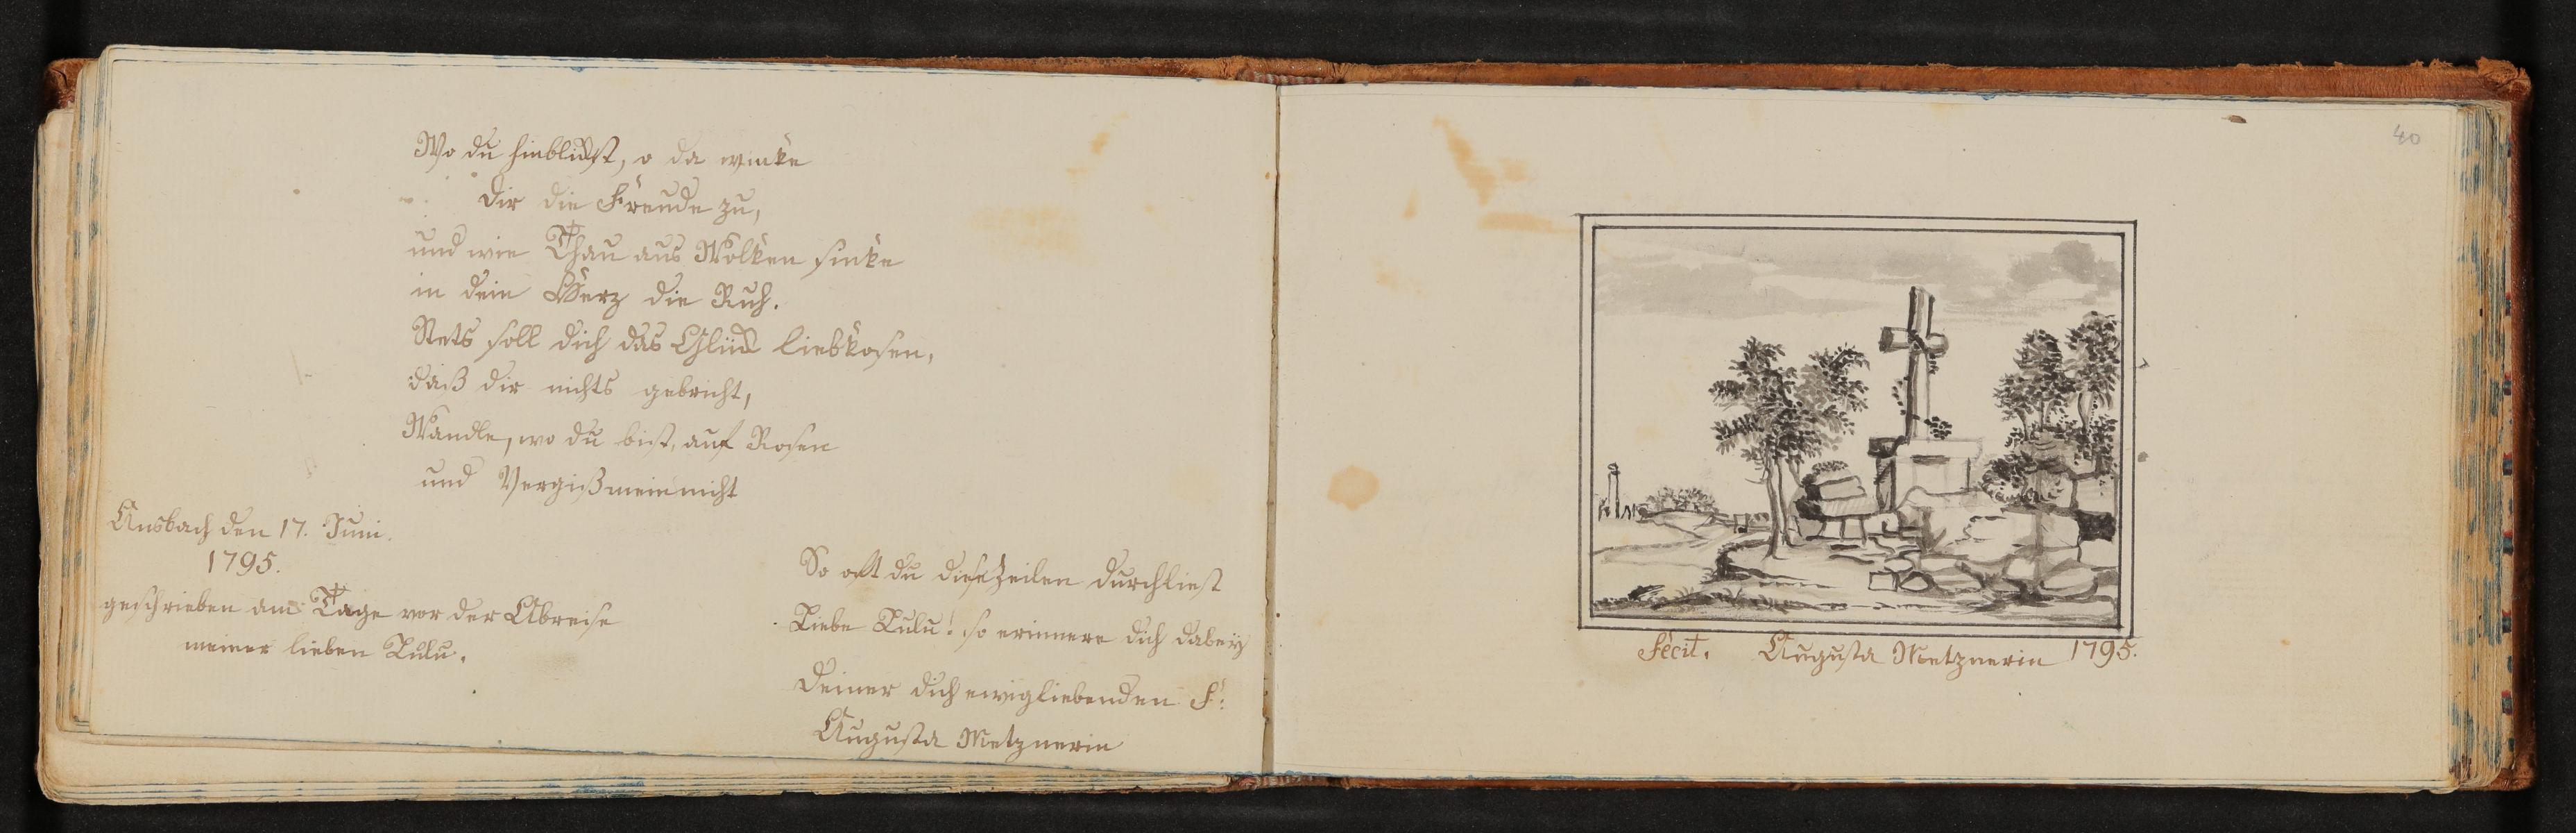 Wo du hinblickst, o da winke
Dir die Freude zu,
und wie Thau aus Wolken sinke
in dein Herz die Ruh.
Stets soll dich das Glück liebkosen,
daß dir nichts gebricht,
Wandle, wo du bist, auf Rosen
und Vergißmeinnicht
Ansbach den 17. Juni.
1795.
geschrieben am Tage vor der Abreise
meiner lieben Lulu.
So oft du diese Zeilen durchliest
Liebe Lulu! so erinnere dich dabey
Deiner dich ewigliebenden F:
Augusta Metznerin
40
Fecit. Augusta Metznerin 1795.